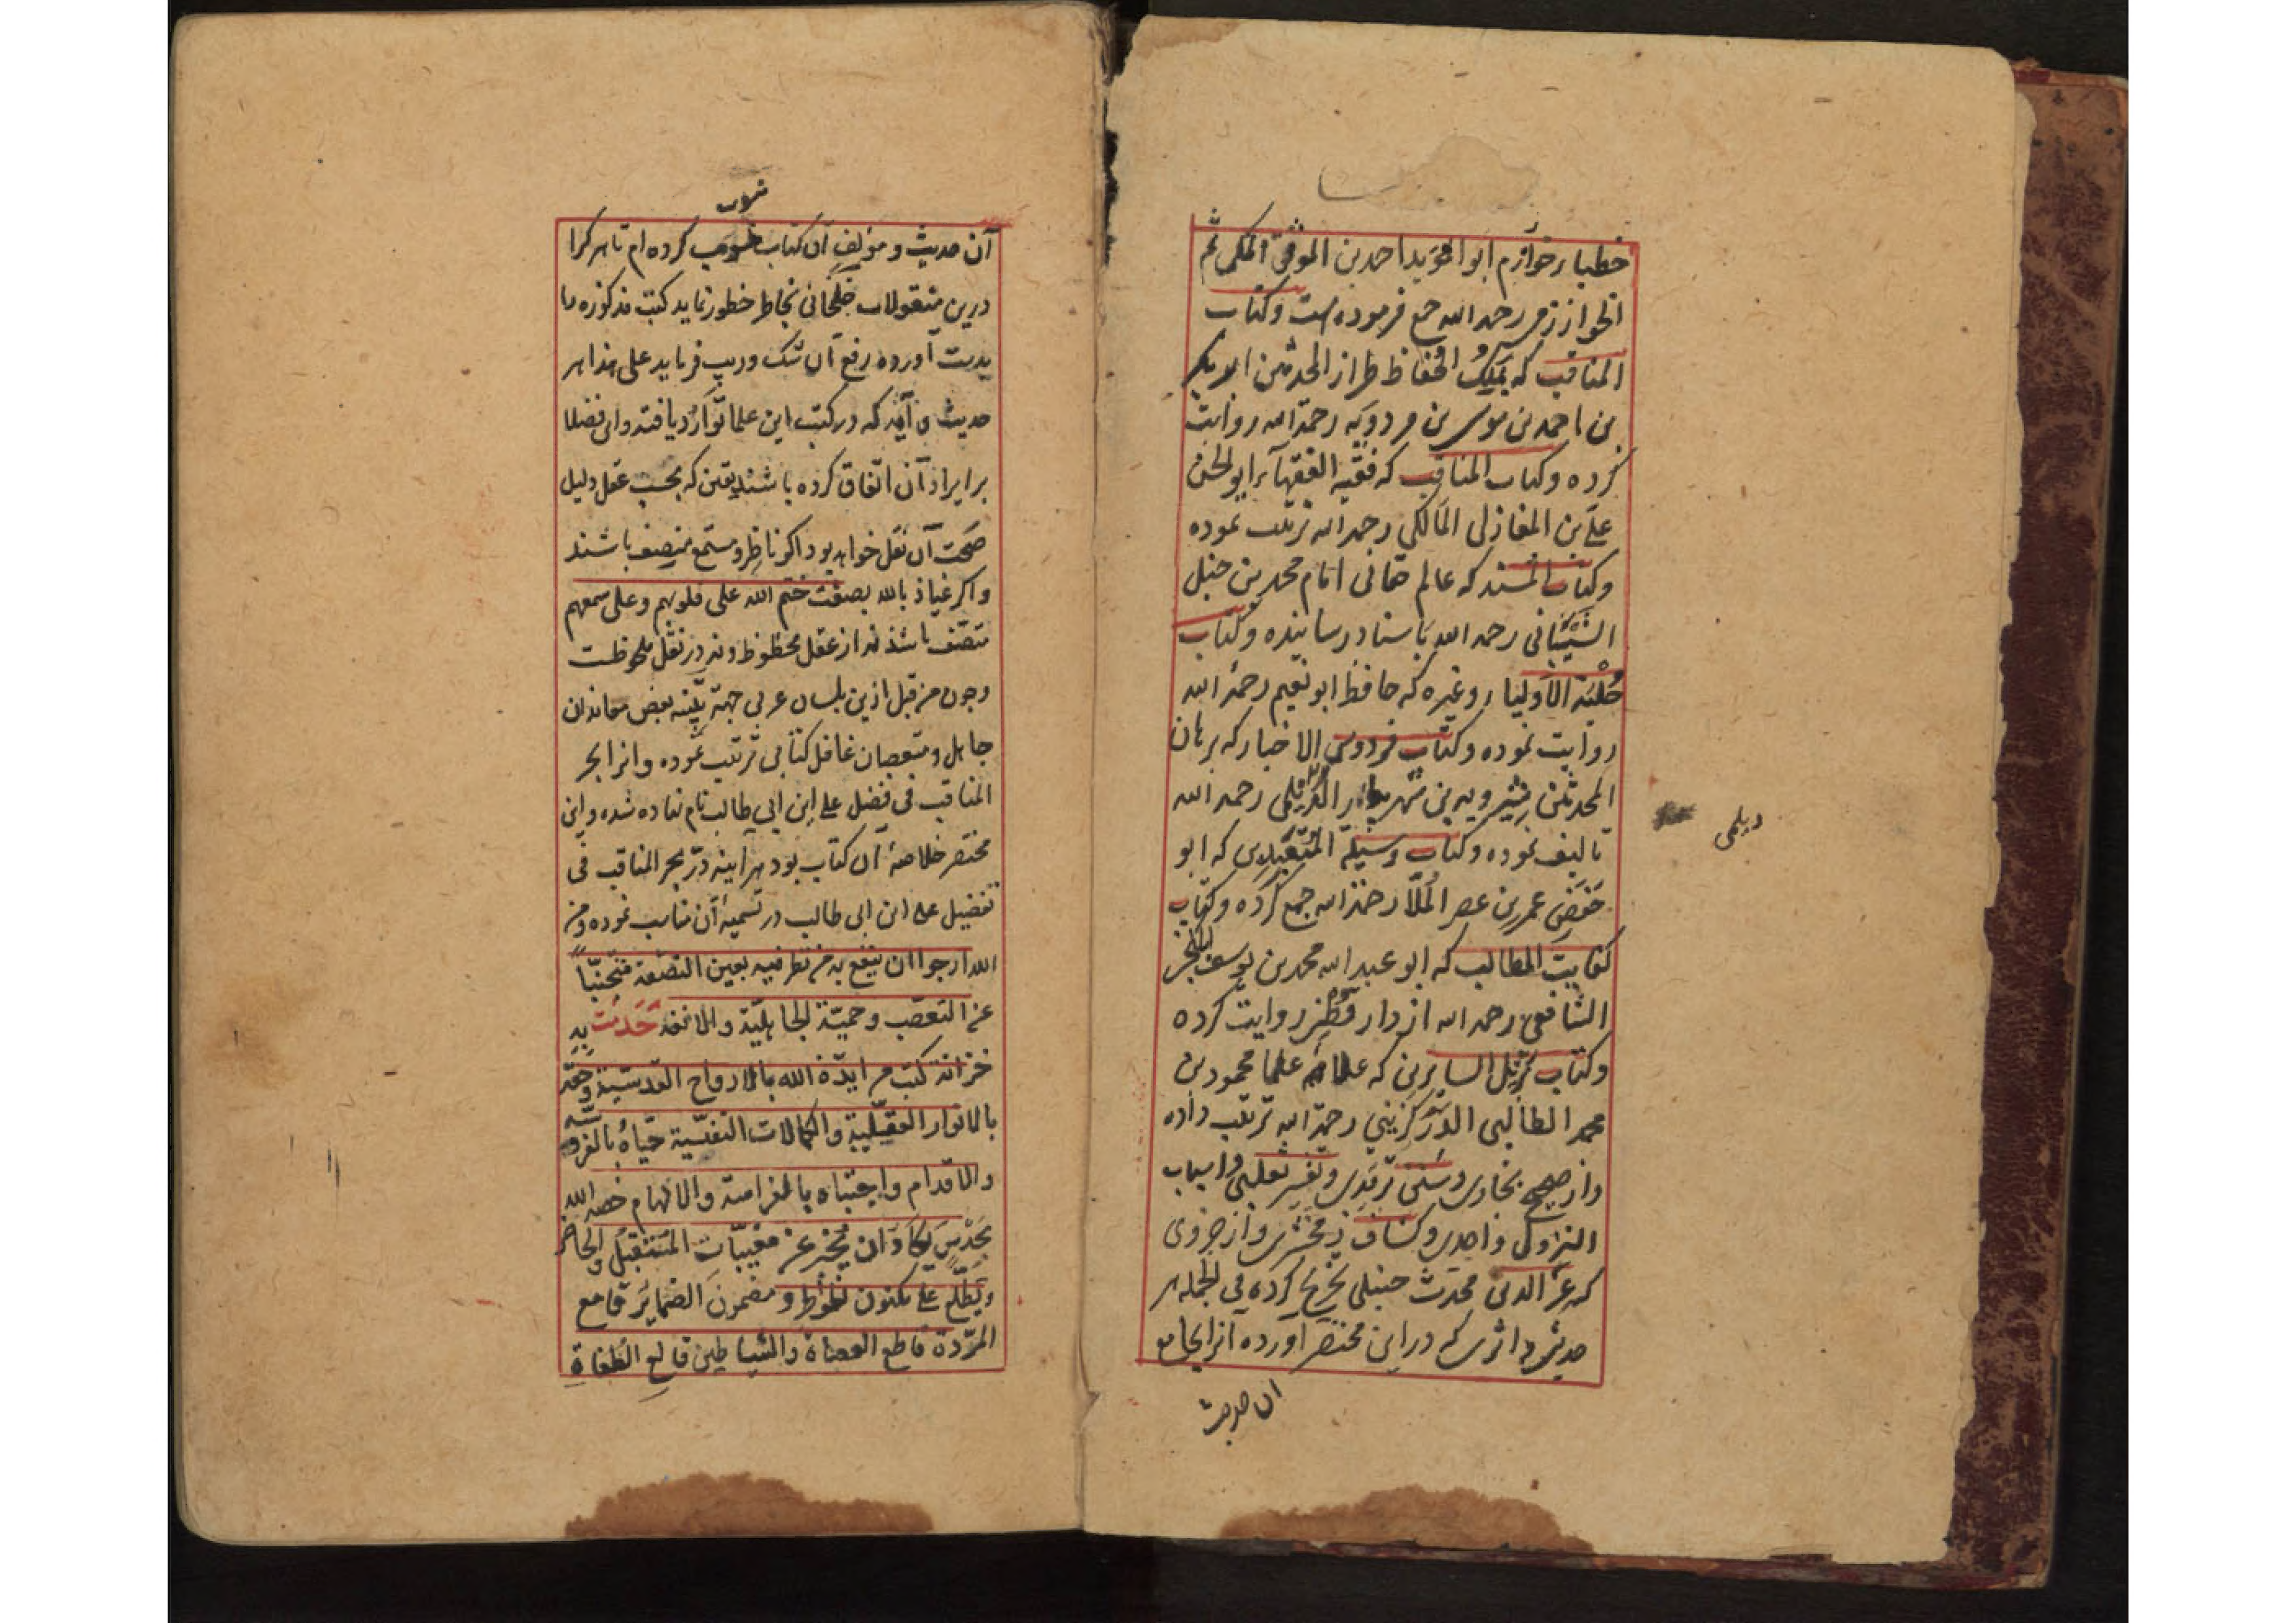 خطباء خوارزم ابو المؤید احمد بن الموفق المکی ثم
الخوارزمی رحمه الله جمع فرموده است و کتاب
المناقب که ملک الحفاظ طراز المحدثین ابو بکر
بن احمد بن موسی بن مردویه رحمة الله روایت
کرده و کتاب المناقب که فقیه الفقهاء ابو الحسن
علی بن المغازلی المالکی رحمه الله ترتیب نموده
و کتاب المسند که عالم حقانی امام محمد بن حنبل
الشیبانی رحمه الله باسناد رسانیده و کتاب
حلیة الاولیاء و غیره که حافظ ابو نعیم رحمه الله
روایت نموده و کتاب فردوس الاخبار که برهان
المحدثین شیرویه بن شهردار الدیلمی رحمه الله
دیلمی
تالیف نموده و کتاب وسیلة المتعبدین که ابو
حفص عمر بن عصر الملا رحمة الله جمع کرده و کتاب
کفایت المطالب که ابو عبد الله محمد بن یوسف
الشافعی رحمه الله از دار قطنی روایت کرده
و کتاب نزل السایرین که علامه علما محمود بن
محمد الطالبی الدرکزینی رحمة الله ترتیب داده
و از صحیح بخاری و سنن ترمذی و تفسیر ثعلبی و اسباب
النزول واحدی و کشاف زمخشری و از جزوی
که عز الدین محدث حنبلی تخریج کرده فی الجمله هر
حدیثی و اثری که در این مختصر آورده آنرا بجامع
ان حدیث
آن حدیث و مؤلف آن کتاب منسوب کرده ام تا هر کرا
درین منقولات خلجانی بخاطر خطور نماید کتب مذکوره را
بدست آورده رفع آن شک و ریب فرماید علی هذا هر
حدیث که در کتب این علما توارد یافته و این فضلا
بر ایراد آن اتفاق کرده باشند یقین که بحسب عقل دلیل
صحت آن نقل خواهد بود اگر ناظر و مستمع منصف باشند
و اگر عیاذ بالله بصفت ختم الله علی قلوبهم و علی سمعهم
متصف باشند نه از عقل محظوظ و نه در نقل ملحوظ است
و چون من قبل ازین بلسان عربی جهة تنبیه بعض معاندان
جاهل و متعصبان غافل کتابی ترتیب نموده و انرا بحر
المناقب فی فضل علی ابن ابی طالب نام نهاده شده و این
مختصر خلاصۀ آن کتاب بود هر آینه درّ بحر المناقب فی
تفضیل علی ابن ابی طالب در تسمیۀ آن مناسب نموده و من
الله ارجو ان ینفع به من نظر فیه بعین النصفة متجنباً
عن التعصب و حمیّة الجاهلیّة و الانفة خدمت به
خزانة کتب من ایّده الله بالارواح القدسیة و حفّه
بالانوار العقلیة و الکمالات النفسیّة حیّاه بالفروسیّة
و الاقدام و اجتباه بالفراسة و الالهام خصه الله
بحدس یکاد ان یخبر عن مغیبات المستقبل و الحاضر
و یطّلع علی مکنون الخواطر و مضمون الضمایر قامع
المردة قاطع العصاة و الشیاطین قالع الطغاة